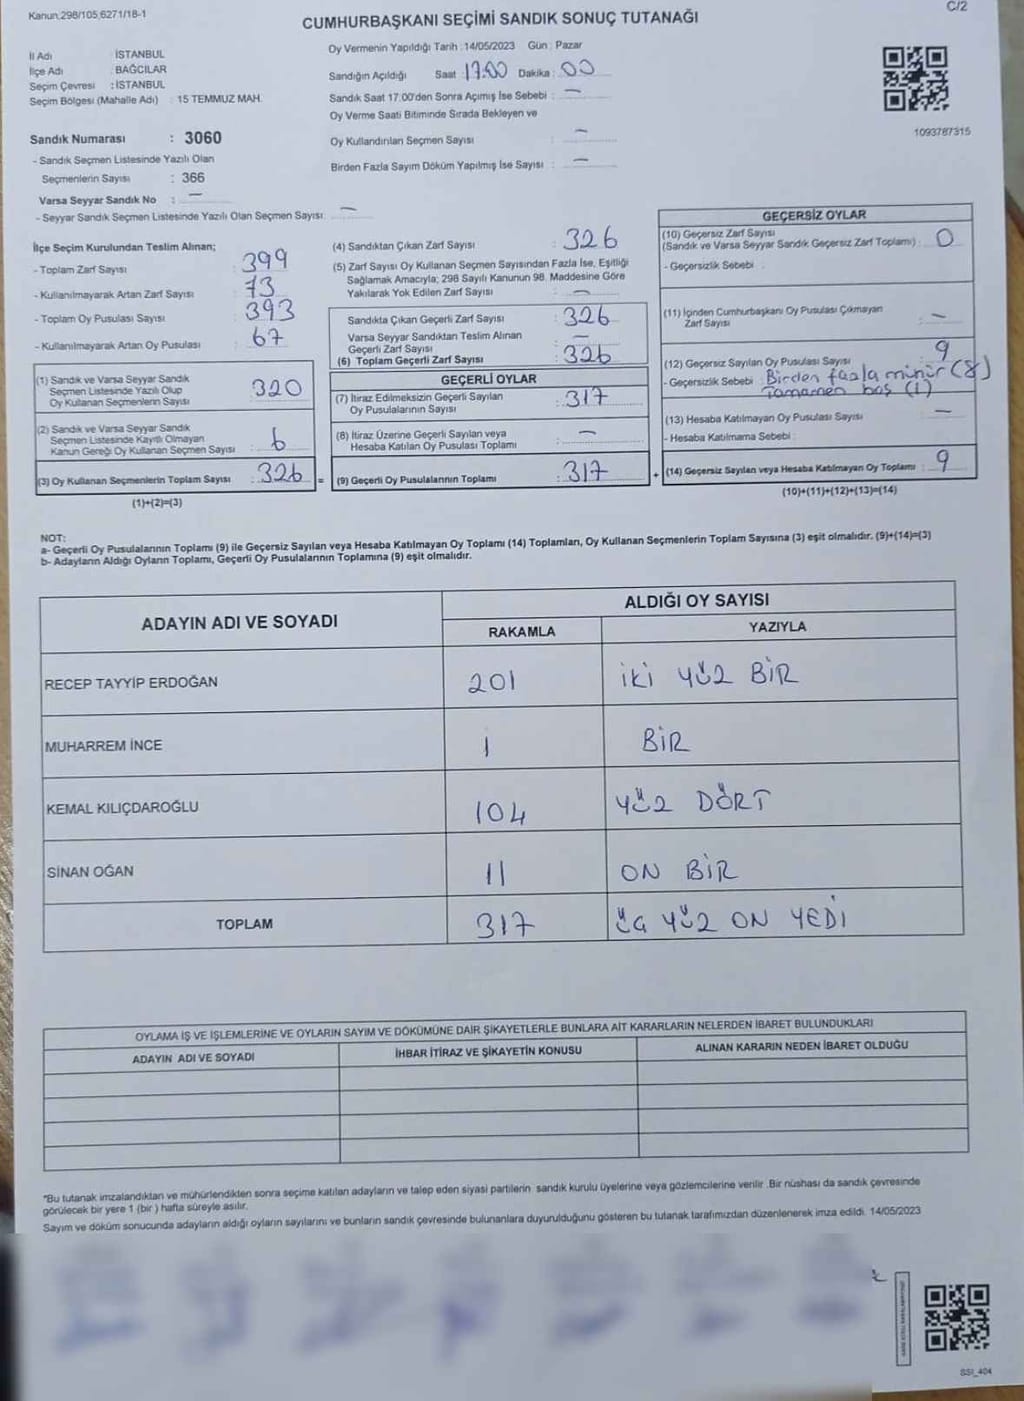 Kanun;298/105,6271/18-1
C/2
CUMHURBAŞKANI SEÇİMİ SANDIK SONUÇ TUTANAĞI
İl Adı : İSTANBUL
İlçe Adı : BAĞCILAR
Seçim Çevresi : İSTANBUL
Seçim Bölgesi (Mahalle Adı) : 15 TEMMUZ MAH.
Sandık Numarası : 3060
- Sandık Seçmen Listesinde Yazılı Olan
Seçmenlerin Sayısı : 366
Varsa Seyyar Sandık No : —
- Seyyar Sandık Seçmen Listesinde Yazılı Olan Seçmen Sayısı: —
Oy Vermenin Yapıldığı Tarih :14/05/2023 Gün : Pazar
Sandığın Açıldığı Saat : 17:00 Dakika : 00
Sandık Saat 17:00'den Sonra Açımış İse Sebebi : —
Oy Verme Saati Bitiminde Sırada Bekleyen ve
Oy Kullandırılan Seçmen Sayısı : —
Birden Fazla Sayım Döküm Yapılmış İse Sayısı : —
1093787315
İlçe Seçim Kurulundan Teslim Alınan;
- Toplam Zarf Sayısı : 399
- Kullanılmayarak Artan Zarf Sayısı : 73
- Toplam Oy Pusulası Sayısı : 393
- Kullanılmayarak Artan Oy Pusulası : 67
(1) Sandık ve Varsa Seyyar Sandık
Seçmen Listesinde Yazılı Olup
Oy Kullanan Seçmenlerin Sayısı : 320
(2) Sandık ve Varsa Seyyar Sandık
Seçmen Listesinde Kayıtlı Olmayan
Kanun Gereği Oy Kullanan Seçmen Sayısı : 6
(3) Oy Kullanan Seçmenlerin Toplam Sayısı : 326 =
(1)+(2)=(3)
(4) Sandıktan Çıkan Zarf Sayısı : 326
(5) Zarf Sayısı Oy Kullanan Seçmen Sayısından Fazla İse, Eşitliği
Sağlamak Amacıyla; 298 Sayılı Kanunun 98. Maddesine Göre
Yakılarak Yok Edilen Zarf Sayısı : —
Sandıkta Çıkan Geçerli Zarf Sayısı : 326
Varsa Seyyar Sandıktan Teslim Alınan
Geçerli Zarf Sayısı : —
(6) Toplam Geçerli Zarf Sayısı : 326
GEÇERLİ OYLAR
(7) İtiraz Edilmeksizin Geçerli Sayılan
Oy Pusulalarının Sayısı : 317
(8) İtiraz Üzerine Geçerli Sayılan veya
Hesaba Katılan Oy Pusulası Toplamı : —
(9) Geçerli Oy Pusulalarının Toplamı : 317 +
GEÇERSİZ OYLAR
(10) Geçersiz Zarf Sayısı
(Sandık ve Varsa Seyyar Sandık Geçersiz Zarf Toplamı) : 0
- Geçersizlik Sebebi :
(11) İçinden Cumhurbaşkanı Oy Pusulası Çıkmayan
Zarf Sayısı : —
(12) Geçersiz Sayılan Oy Pusulası Sayısı : 9
- Geçersizlik Sebebi : Birden fazla mühür (8)
Tamamen boş (1)
(13) Hesaba Katılmayan Oy Pusulası Sayısı : —
- Hesaba Katılmama Sebebi :
(14) Geçersiz Sayılan veya Hesaba Katılmayan Oy Toplamı : 9
(10)+(11)+(12)+(13)=(14)
NOT:
a- Geçerli Oy Pusulalarının Toplamı (9) ile Geçersiz Sayılan veya Hesaba Katılmayan Oy Toplamı (14) Toplamları, Oy Kullanan Seçmenlerin Toplam Sayısına (3) eşit olmalıdır. (9)+(14)=(3)
b- Adayların Aldığı Oyların Toplamı, Geçerli Oy Pusulalarının Toplamına (9) eşit olmalıdır.
ADAYIN ADI VE SOYADI ALDIĞI OY SAYISI
RAKAMLA YAZIYLA
RECEP TAYYİP ERDOĞAN 201 İKİ YÜZ BİR
MUHARREM İNCE 1 BİR
KEMAL KILIÇDAROĞLU 104 YÜZ DÖRT
SİNAN OĞAN 11 ON BİR
TOPLAM 317 ÜÇ YÜZ ON YEDİ
OYLAMA İŞ VE İŞLEMLERİNE VE OYLARIN SAYIM VE DÖKÜMÜNE DAİR ŞİKAYETLERLE BUNLARA AİT KARARLARIN NELERDEN İBARET BULUNDUKLARI
ADAYIN ADI VE SOYADI İHBAR İTİRAZ VE ŞİKAYETİN KONUSU ALINAN KARARIN NEDEN İBARET OLDUĞU
*Bu tutanak imzalandıktan ve mühürlendikten sonra seçime katılan adayların ve talep eden siyasi partilerin sandık kurulu üyelerine veya gözlemcilerine verilir .Bir nüshası da sandık çevresinde
görülecek bir yere 1 (bir ) hafta süreyle asılır.
Sayım ve döküm sonucunda adayların aldığı oyların sayılarını ve bunların sandık çevresinde bulunanlara duyurulduğunu gösteren bu tutanak tarafımızdan düzenlenerek imza edildi. 14/05/2023
SSI_404